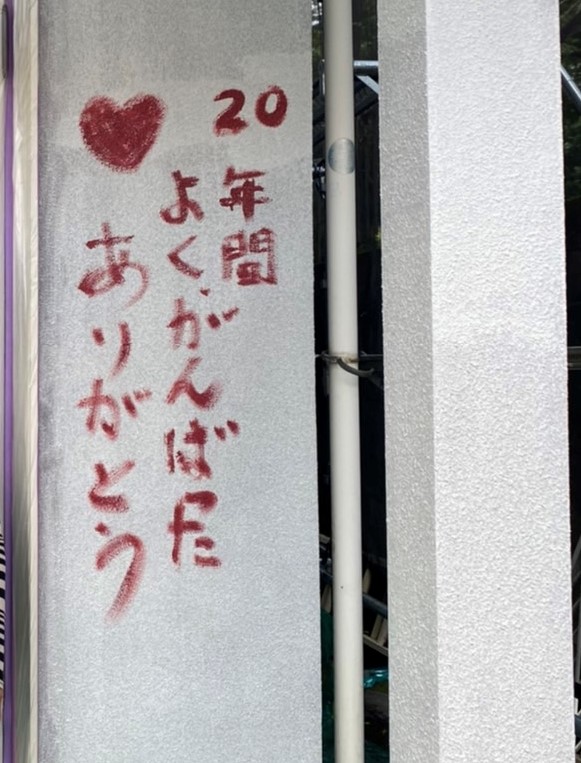 20年間
よくがんばった
ありがとう